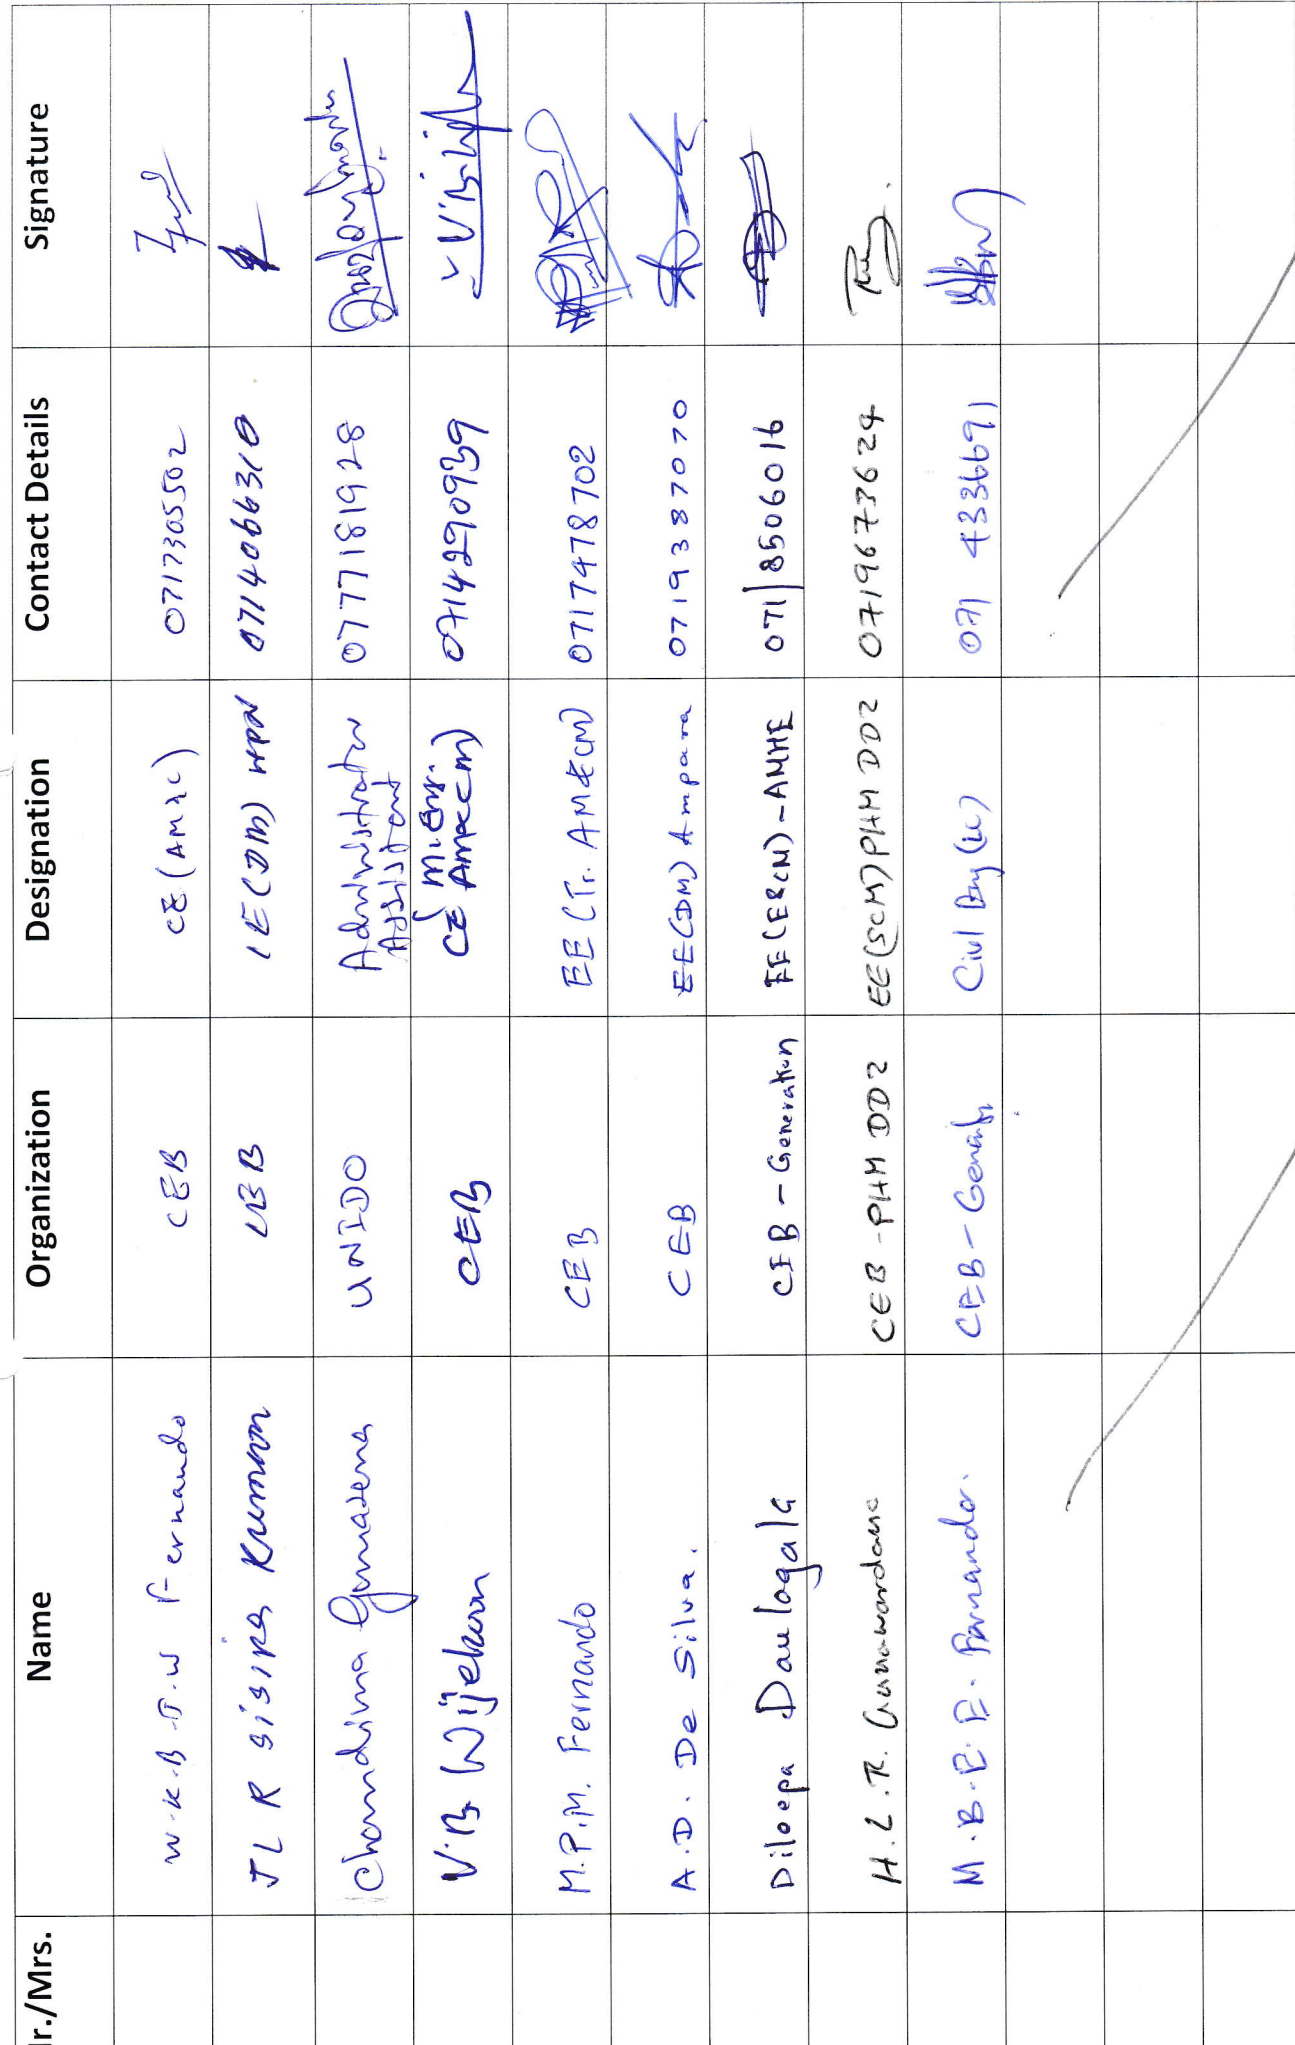 Mr./Mrs. Name Organization Designation Contact Details Signature
W.K.B.T.W Fernando CEB CE (AM&C) 0717305502
J L R Sisira Kumara CEB (DM) 0714066310
Chandima Gunasena UNIDO Administrative 0777181928
Assistant
V.B. Wijekoon CEB CE 0714290939
M.P.M. Fernando CEB EE (Tr. AM&CM) 0717478702
A.D. De Silva. CEB EE(DM) Ampara 0719387070
Dileepa Daulagala CEB - Generation EE(E&CM) - AMHE 071 8506016
H.L.R. Gunawardana CEB - PHM DD2 EE(SCM) PHM DD2 0719673624
M.B.E.E. Fernando. CEB - Civil 071 4336691